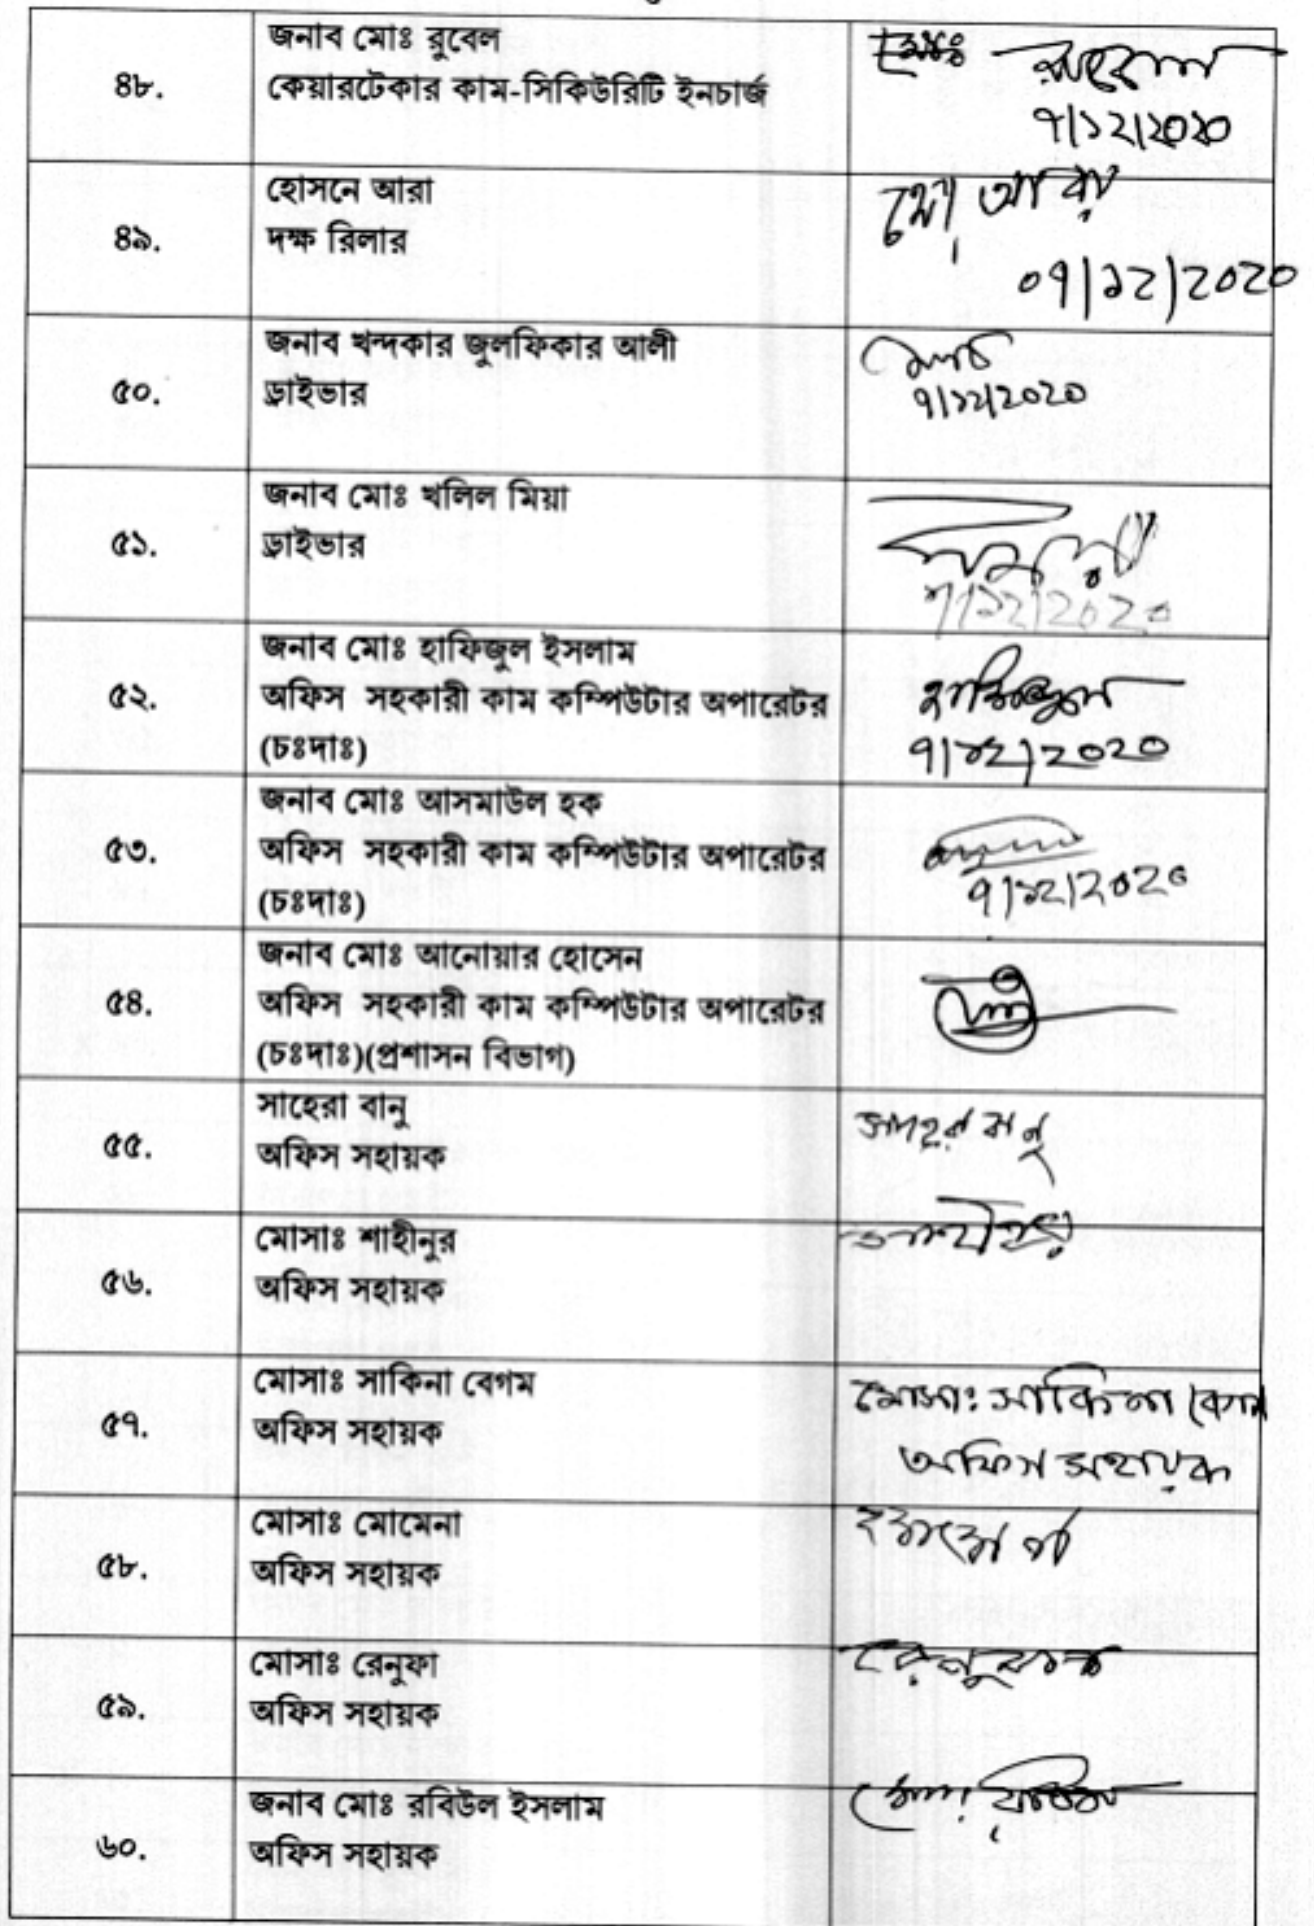 ৪৮.
জনাব মোঃ রুবেল
কেয়ারটেকার কাম-সিকিউরিটি ইনচার্জ
মোঃ রুবেল
৭/১২/২০২০
৪৯.
হোসনে আরা
দক্ষ রিলার
আরা
০৭/১২/২০২০
৫০.
জনাব খন্দকার জুলফিকার আলী
ড্রাইভার
৭/১২/২০২০
৫১.
জনাব মোঃ খলিল মিয়া
ড্রাইভার
৭/১২/২০২০
৫২.
জনাব মোঃ হাফিজুল ইসলাম
অফিস সহকারী কাম কম্পিউটার অপারেটর
(চঃদাঃ)
হাফিজুল
৭/১২/২০২০
৫৩.
জনাব মোঃ আসমাউল হক
অফিস সহকারী কাম কম্পিউটার অপারেটর
(চঃদাঃ)
৭/১২/২০২০
৫৪.
জনাব মোঃ আনোয়ার হোসেন
অফিস সহকারী কাম কম্পিউটার অপারেটর
(চঃদাঃ)(প্রশাসন বিভাগ)
৫৫.
সাহেরা বানু
অফিস সহায়ক
সাহেরা বানু
৫৬.
মোসাঃ শাহীনুর
অফিস সহায়ক
৫৭.
মোসাঃ সাকিনা বেগম
অফিস সহায়ক
মোসাঃ সাকিনা বেগম
অফিস সহায়ক
৫৮.
মোসাঃ মোমেনা
অফিস সহায়ক
৫৯.
মোসাঃ রেনুফা
অফিস সহায়ক
রেনুফা
৬০.
জনাব মোঃ রবিউল ইসলাম
অফিস সহায়ক